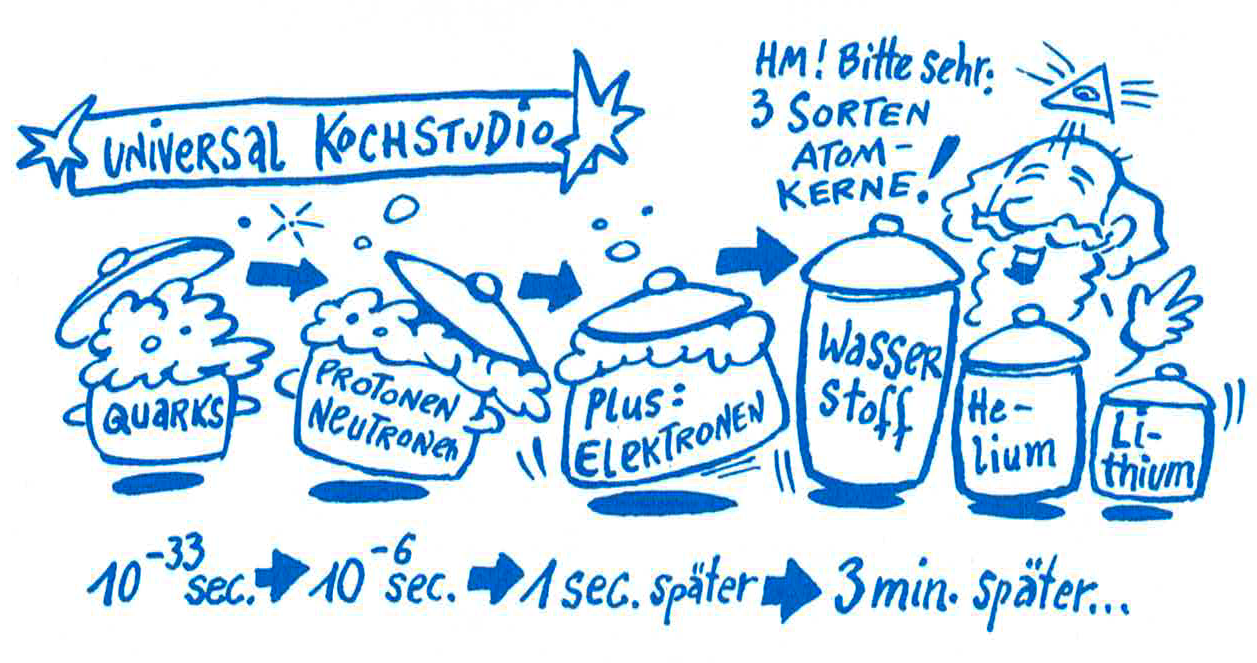 UNIVERSAL KOCHSTUDIO
HM! Bitte sehr:
3 SORTEN
ATOM-
KERNE!
QUARKS
PROTONEN
NEUTRONEN
PLUS:
ELEKTRONEN
Wasser
stoff
He-
lium
Li-
thium
10⁻³³ sec. 10⁻⁶ sec. 1 sec. später 3 min. später...